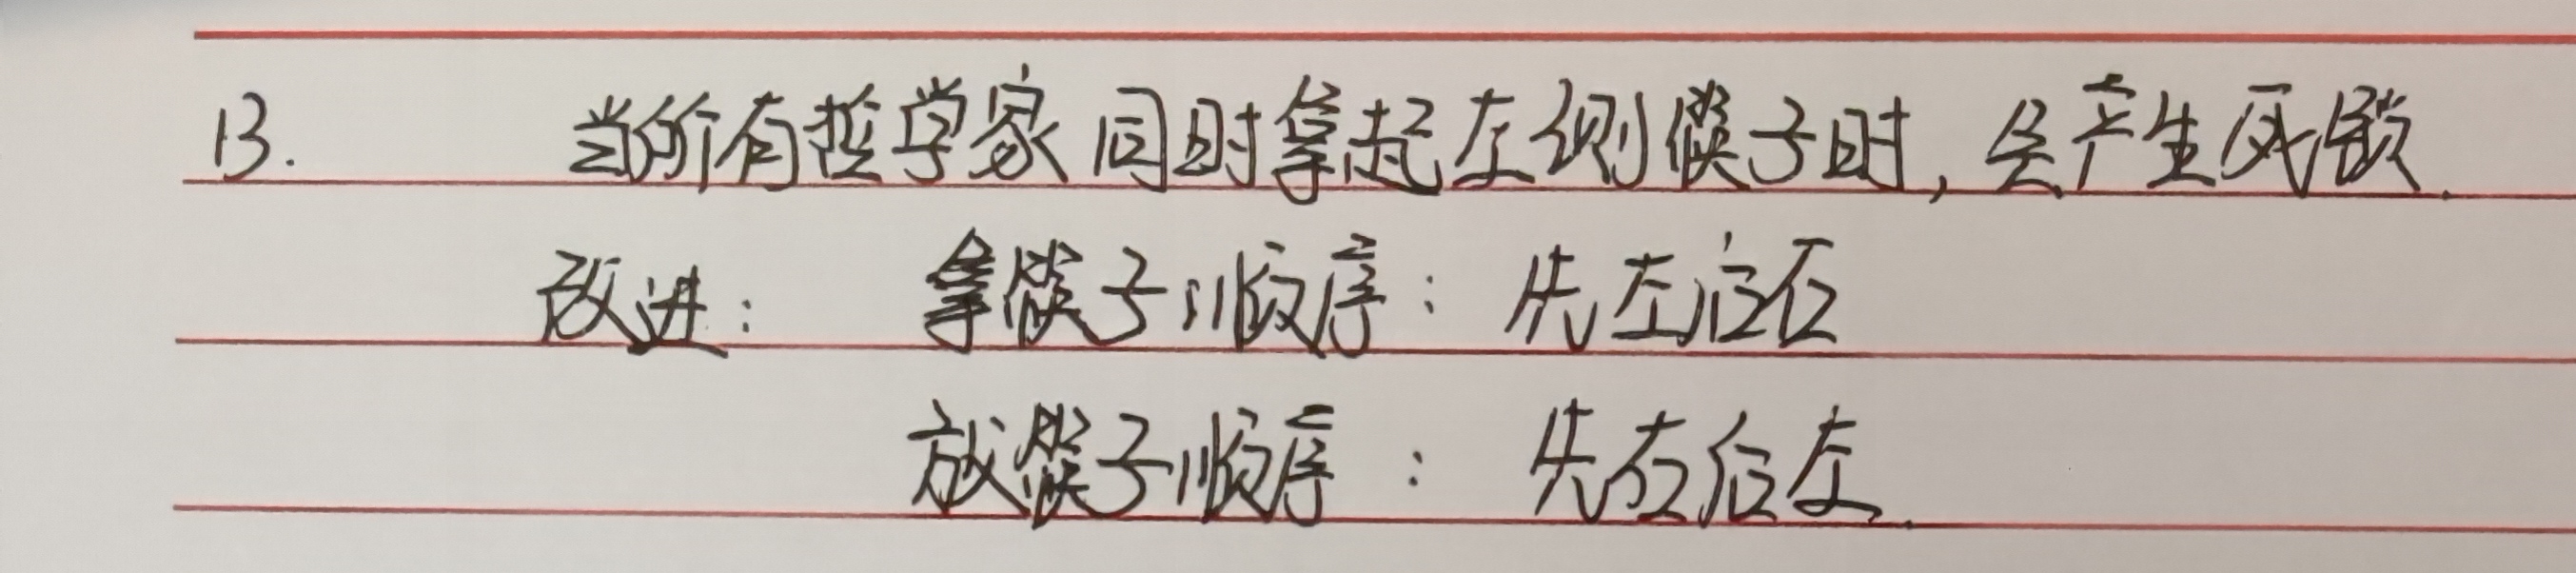 13. 当所有哲学家同时拿起左侧筷子时, 会产生死锁.
改进: 拿筷子顺序: 先左后右
放筷子顺序: 先右后左.